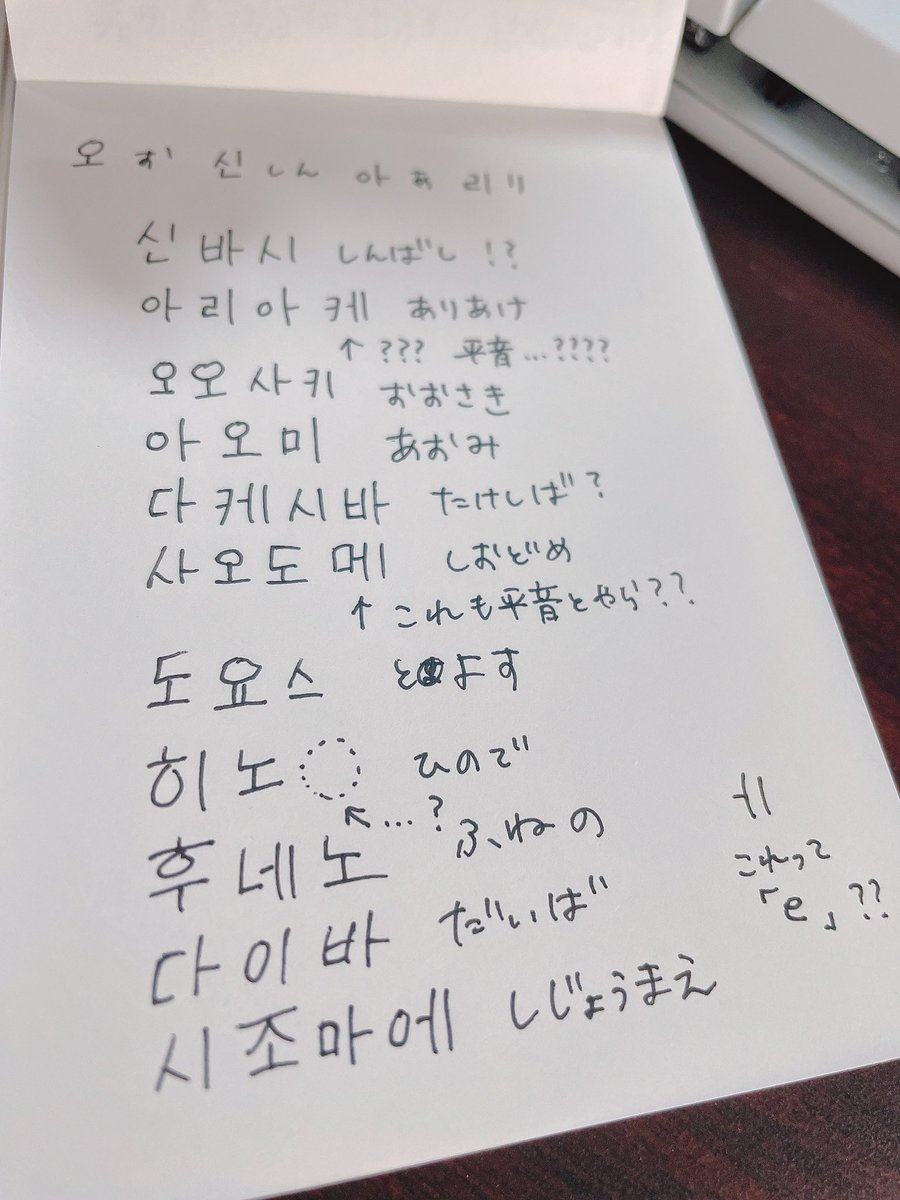 오 お 신 しん 아 あ 리 り
신바시 しんばし !?
아리아케 ありあけ
↑ ??? 平音...????
오오사키 おおさき
아오미 あおみ
다케시바 たけしば?
사오도메 しおどめ
↑ これも平音とやら??
도요스 とよす
히노 ひので
↖...?
후네노 ふねの
ㅔ
これって
「e」??
다이바 だいば
시조마에 しじょうまえ